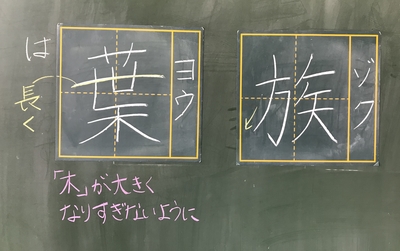 は
長く
葉
ヨウ
「木」が大きく
なりすぎないように
族
ゾク